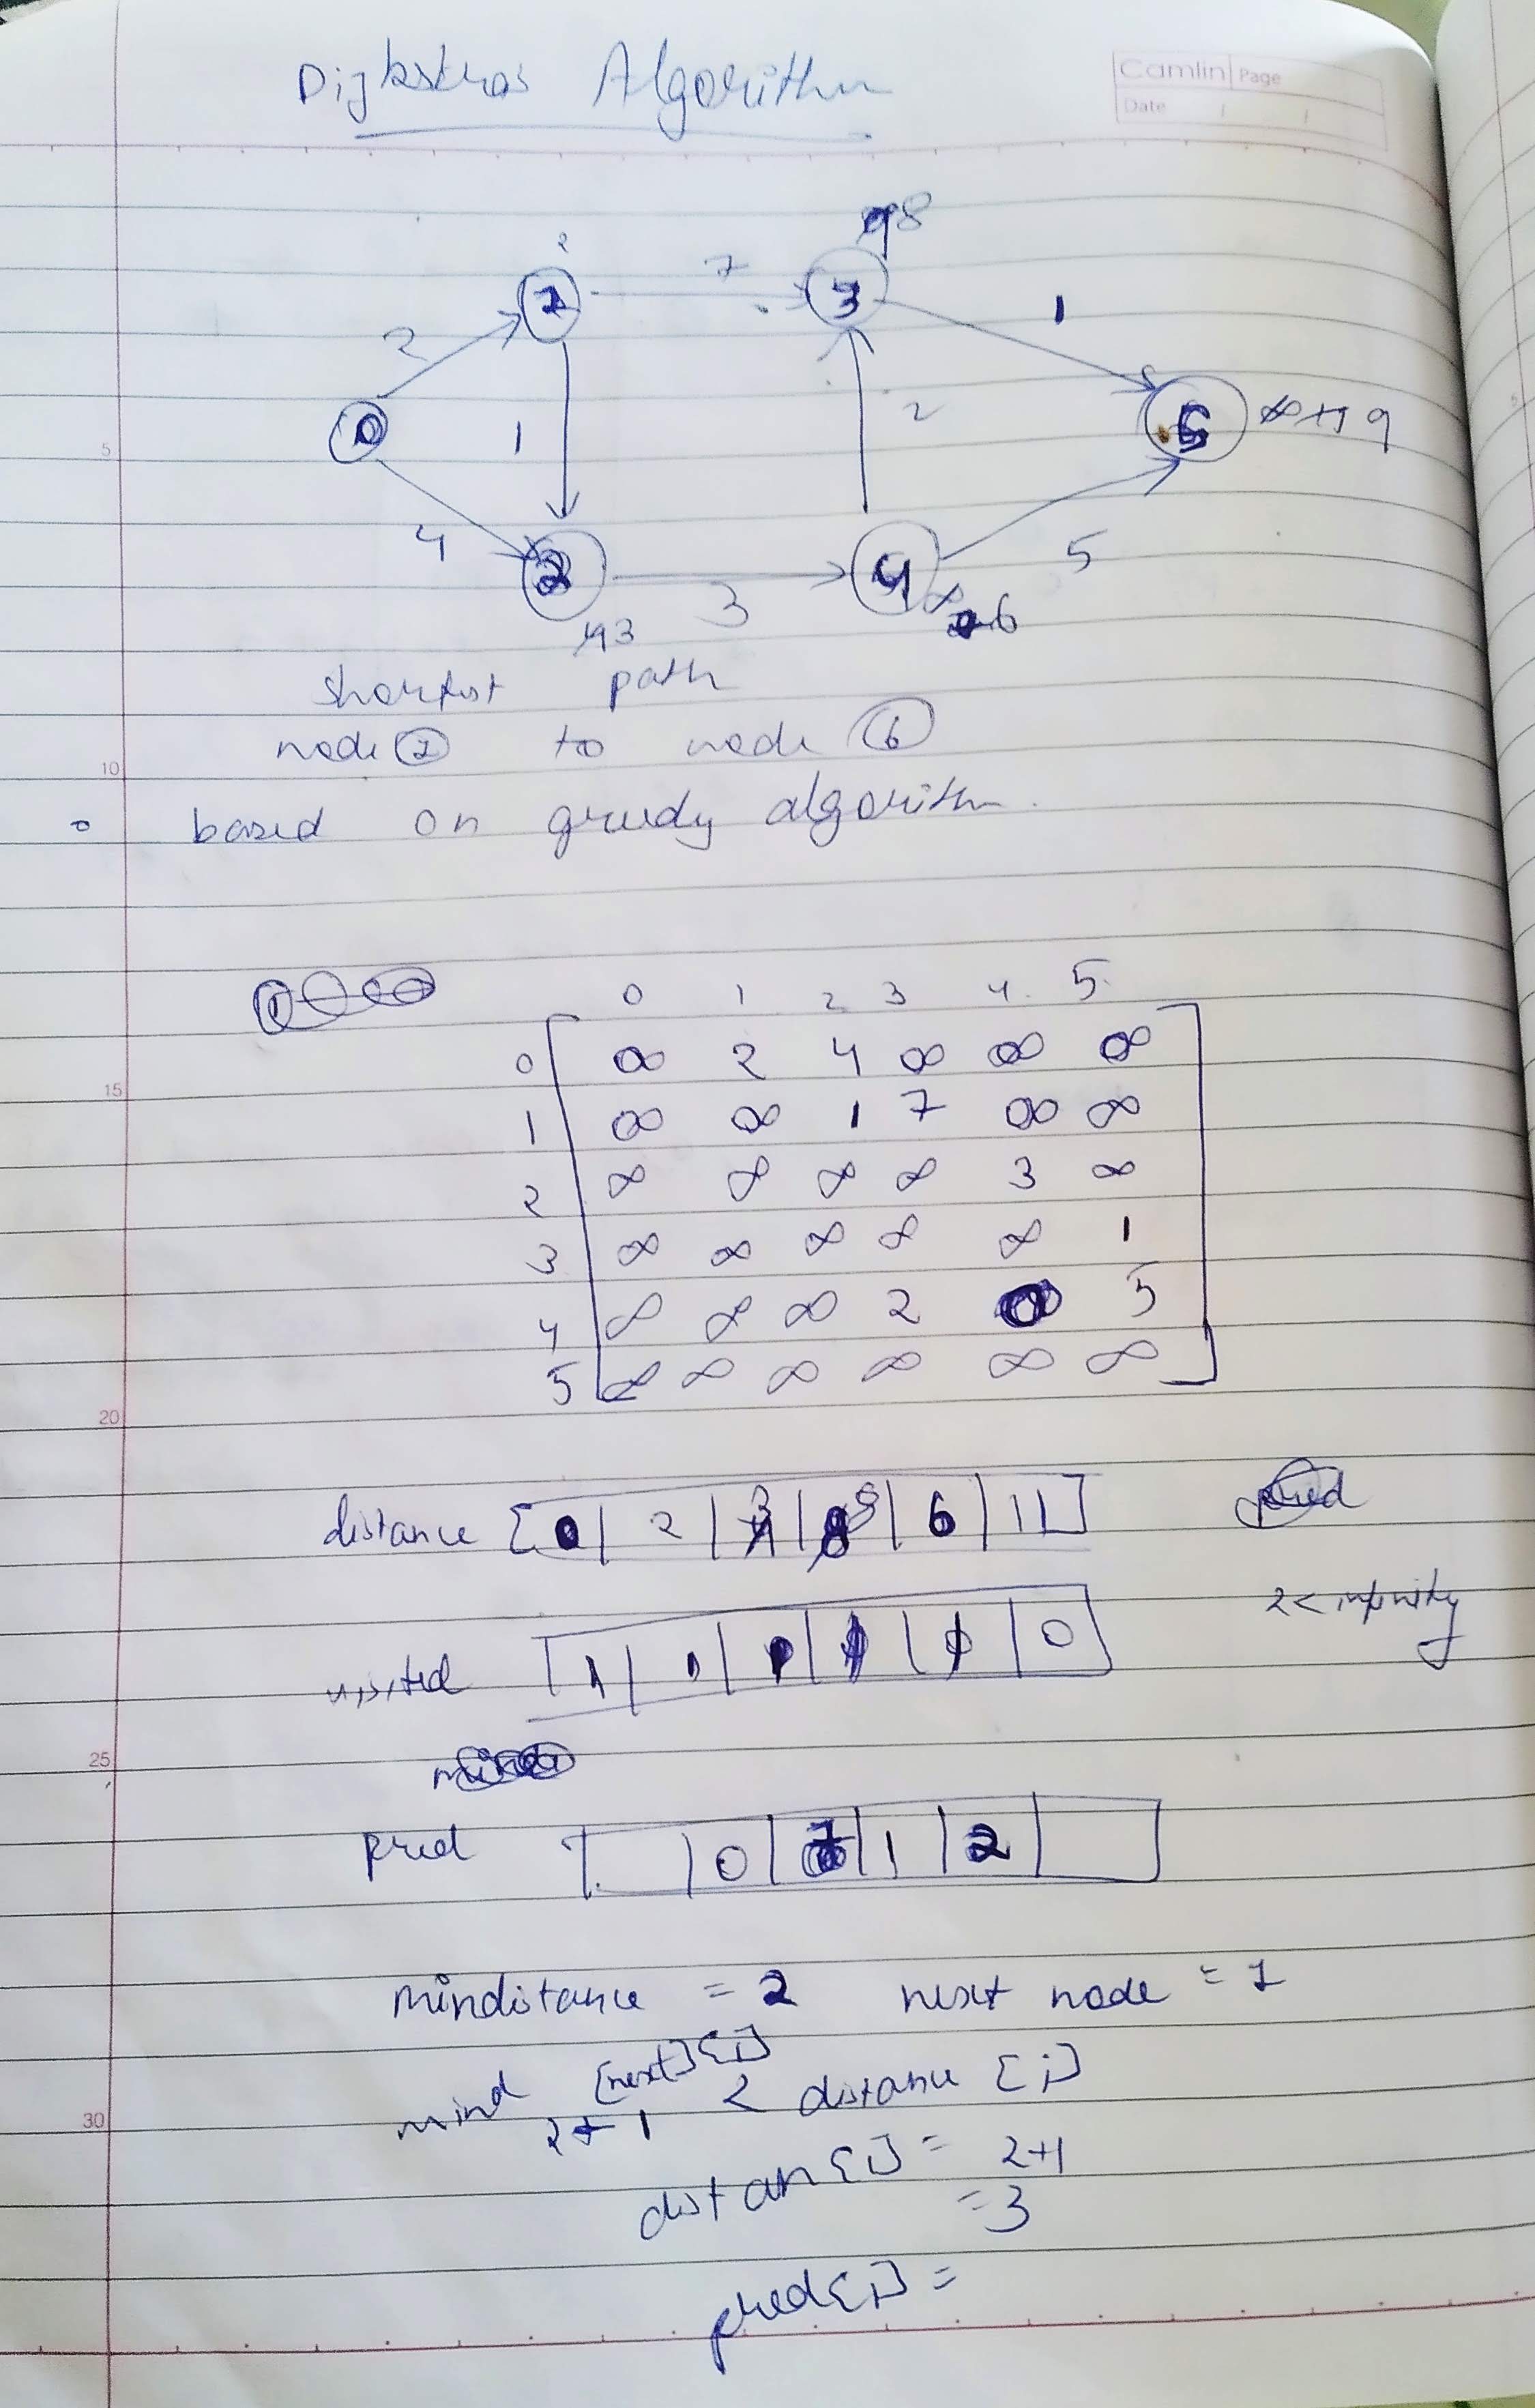 Dijkstras Algorithm
Camlin Page
Date
98
2
7
3
1
2
1
0
2
5
∞ 11 9
4
2
3
4
5
43
∞ 6
shortest path
node 1 to node 6
based on greedy algorithm.
0 1 2 3 4. 5.
0 ∞ 2 4 ∞ ∞ ∞
1 ∞ ∞ 1 7 ∞ ∞
2 ∞ ∞ ∞ ∞ 3 ∞
3 ∞ ∞ ∞ ∞ ∞ 1
4 ∞ ∞ ∞ 2 5
5 ∞ ∞ ∞ ∞ ∞ ∞
distance [ 0 | 2 | 3 4 | 8 | 6 | 11 ]
pred
2 < infinity
visited 1 | 1 | 1 | 1 | 1 | 0
pred | 0 | 1 | 1 | 2 |
mindistance = 2 next node = 1
mind [next][i] < distance [i]
2 + 1
distan[i] = 2+1
= 3
pred[i] =
5
10
15
20
25
30